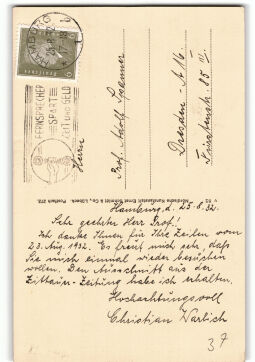 HAMBURG
FERNSPRECHER
SPART
ZEIT UND GELD
Herrn
Prof. Adolf Spamer
Dresden-A 16.
Fürstenstr. 85 III
Hamburg, d. 25.8.32.
Sehr geehrter Herr Prof.!
Ich danke Ihnen für Ihre Zeilen vom
23. Aug. 1932. Es freut mich sehr, daß
Sie mich einmal wieder besuchen
wollen. Den Ausschnitt aus der
Zittauer-Zeitung habe ich erhalten.
Hochachtungsvoll
Christian Warlich
37